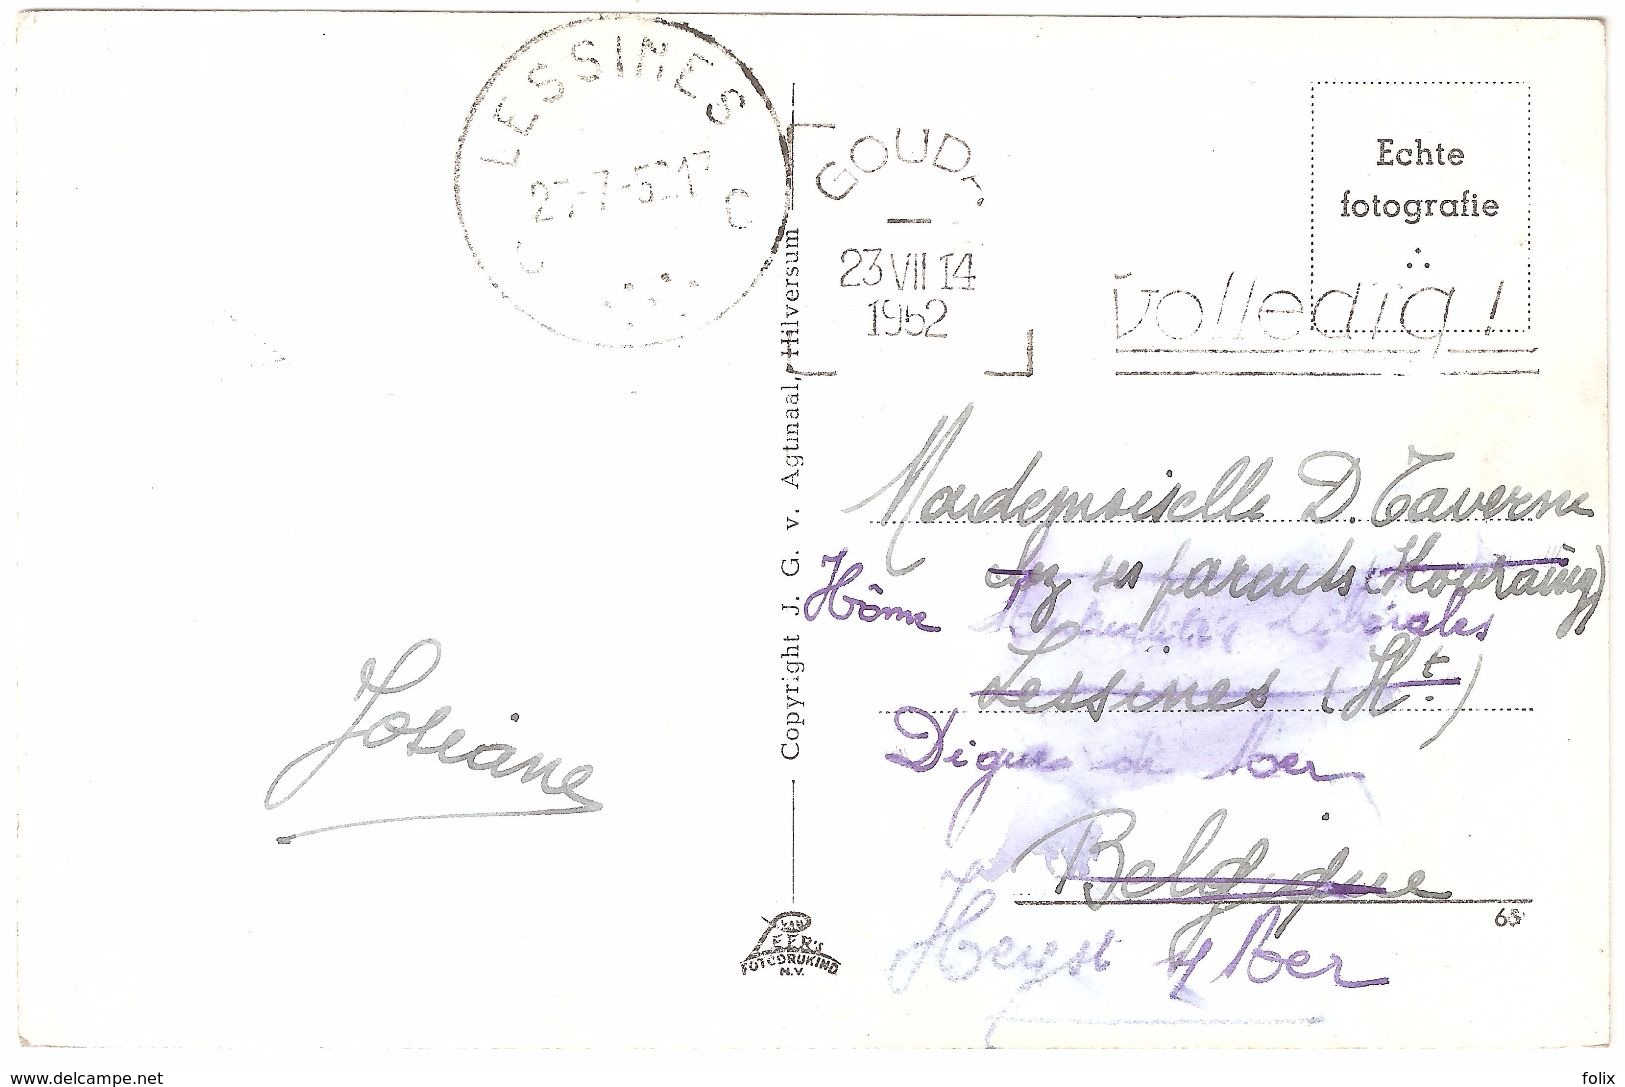 LESSINES
27-7-52 17
C C
GOUDA
23 VII 14
1952
volledig!
Echte
fotografie
Copyright J. G. v. Agtmaal, Hilversum
Mademoiselle D. Taverne
chez ses parents (Houraing)
Hôme Libérales
Lessines (Ht)
Digue de Mer
Belgique
65
Heyst s/ Mer
Josiane
VAN LEER'S
FOTODRUKIND
N.V.
www.delcampe.net
folix